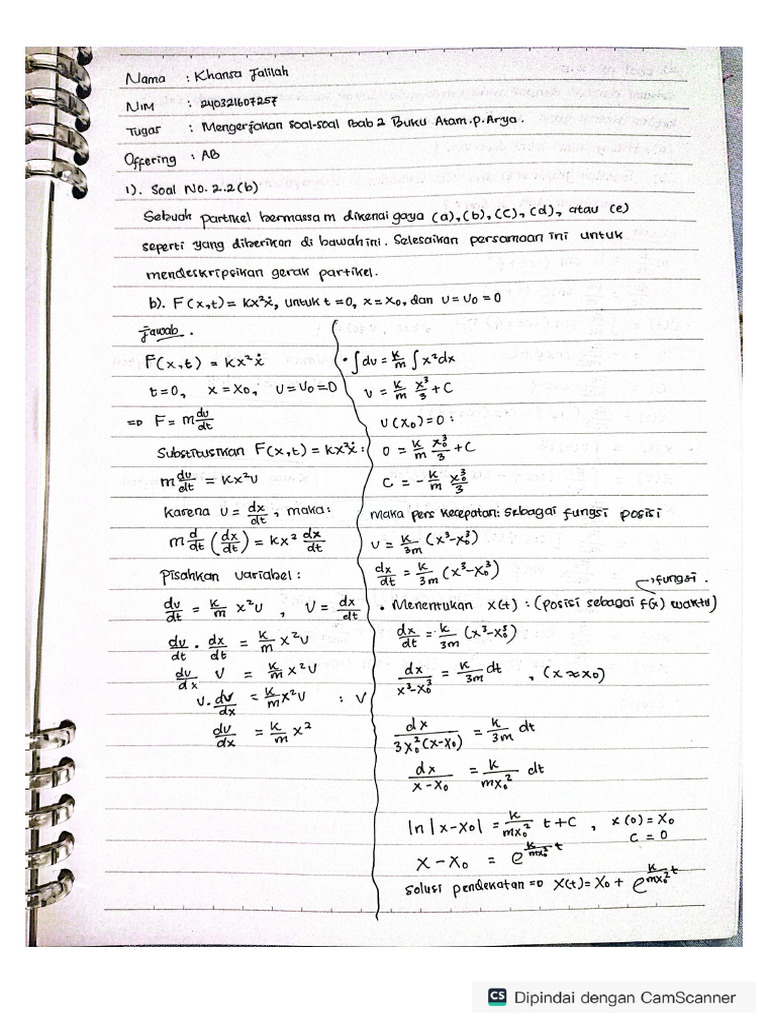 Nama : Khansa Jalilah
NIM : 240321607257
Tugas : Mengerjakan soal-soal Bab 2 Buku Atam.p.Arya.
Offering : AB
1). Soal No. 2.2 (b)
Sebuah partikel bermassa m dikenai gaya (a), (b), (c), (d), atau (e)
seperti yang diberikan di bawah ini. Selesaikan persamaan ini untuk
mendeskripsikan gerak partikel.
b). F(x,t) = kx²ẋ, untuk t = 0, x = x₀, dan v = v₀ = 0
Jawab.
F(x,t) = kx²ẋ
t=0, x = x₀, v = v₀ = 0
=> F = m dv/dt
Substitusikan F(x,t) = kx²ẋ :
m dv/dt = kx²v
karena v = dx/dt, maka:
m d/dt (dx/dt) = kx² dx/dt
Pisahkan variabel :
dv/dt = k/m x²v , v = dx/dt
dv/dt · dx/dt = k/m x²v
dv/dx v = k/m x²v
v. dv/dx = k/m x²v : v
dv/dx = k/m x²
• ∫dv = k/m ∫x²dx
v = k/m x³/3 + C
v(x₀) = 0 :
0 = k/m x₀³/3 + C
C = - k/m x₀³/3
maka pers kecepatan: sebagai fungsi posisi
v = k/3m (x³-x₀³)
dx/dt = k/3m (x³-x₀³)
→ fungsi.
• Menentukan x(t) : (posisi sebagai f(x) waktu)
dx/dt = k/3m (x³-x₀³)
dx/x³-x₀³ = k/3m dt , (x≈x₀)
dx/3x₀²(x-x₀) = k/3m dt
dx/x-x₀ = k/mx₀² dt
ln|x-x₀| = k/mx₀² t + C , x(0) = x₀
C = 0
x-x₀ = e^k/mx₀² t
solusi pendekatan => x(t) = x₀ + e^k/mx₀² t
CS Dipindai dengan CamScanner